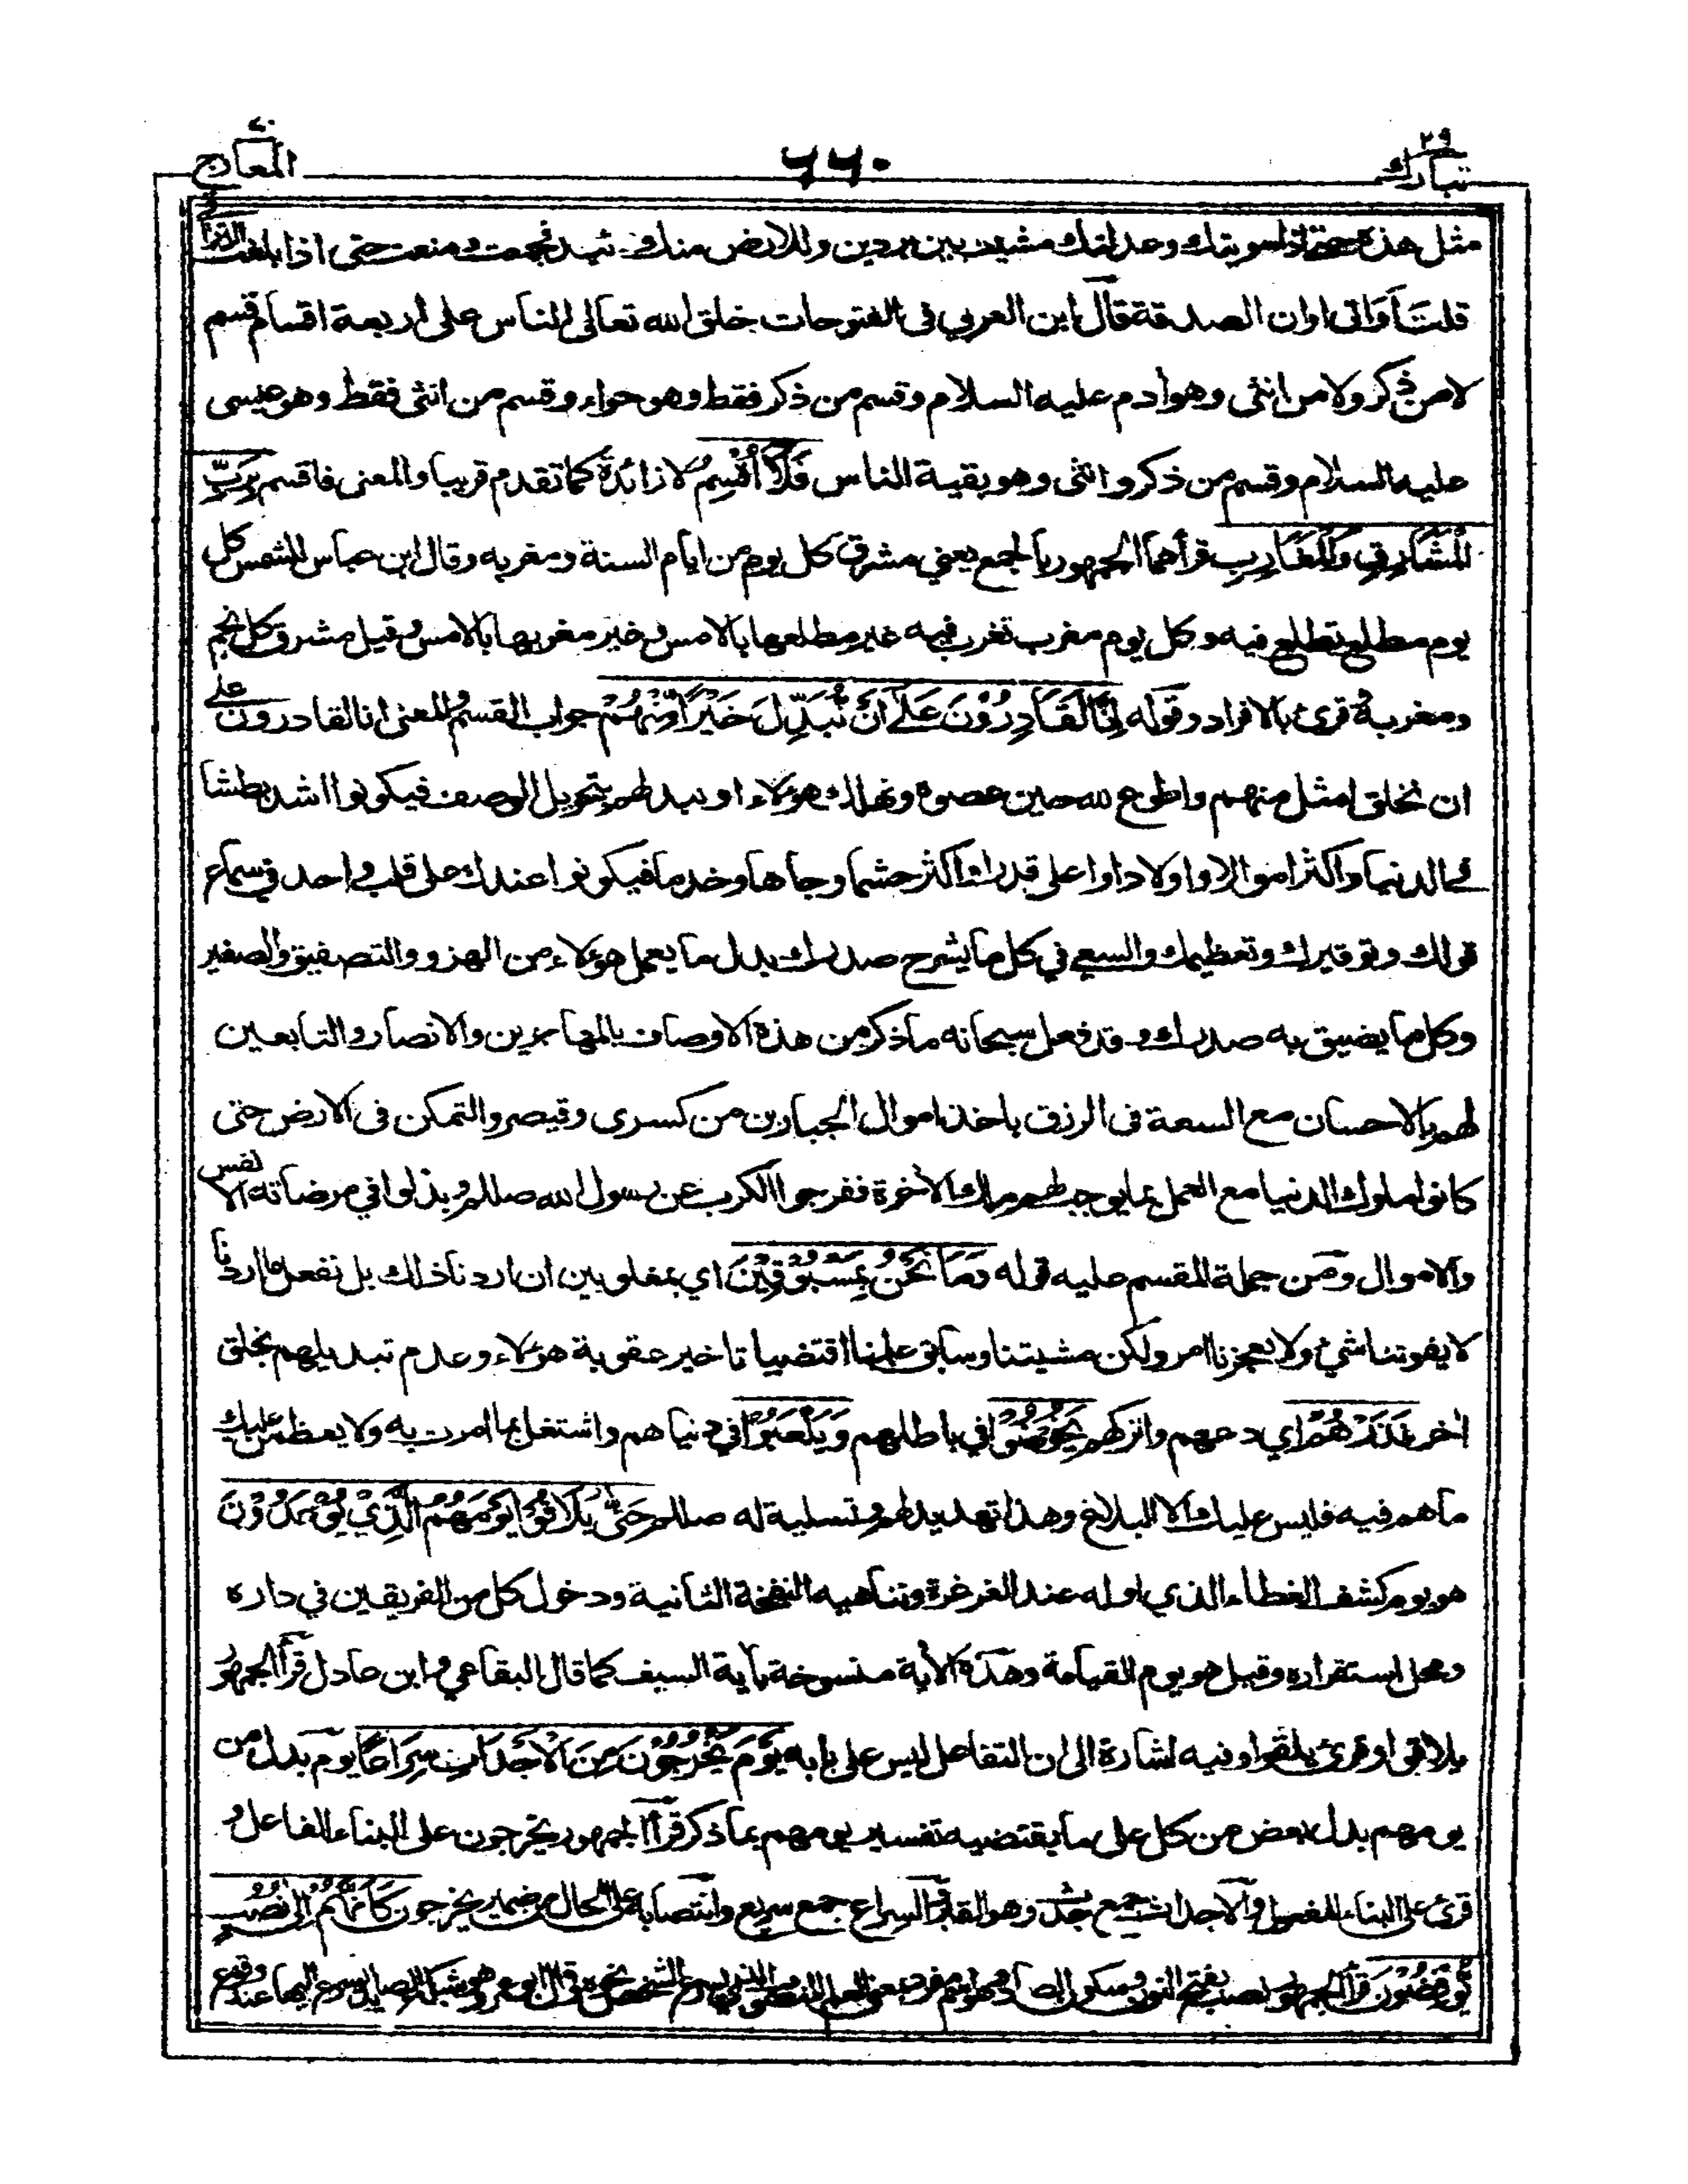 تبارك ٢٩
٦٦٠
المعارج ٧٠
مثل هذه حتى اذا سويتك وعدلتك مشيت بين بردين وللارض منك وئيد فجمعت ومنعت حتى اذا بلغت التراقي
قلت اَوَاَنّى اوان الصدقة قال ابن العربي فى الفتوحات خلق الله تعالى الناس على اربعة اقسام قسم
لا من ذكر ولا من انثى وهو ادم عليه السلام وقسم من ذكر فقط وهو حواء وقسم من انثى فقط وهو عيسى
عليه السلام وقسم من ذكر وانثى وهو بقية الناس فَلَآ اُقْسِمُ لا زائدة كما تقدم قريبا والمعنى فاقسم بِرَبِّ
الْمَشَارِقِ وَالْمَغَارِبِ قرأهما الجمهور بالجمع يعني مشرق كل يوم من ايام السنة ومغربه وقال ابن عباس للشمس كل
يوم مطلع تطلع فيه وكل يوم مغرب تغرب فيه غير مطلعها بالامس وغير مغربها بالامس وقيل مشرق كل نجم
ومغربه وقرئ بالافراد وقوله اِنَّا لَقَادِرُوْنَ عَلٰٓى اَنْ نُّبَدِّلَ خَيْرًا مِّنْهُمْ جواب القسم والمعنى انا لقادرون على
ان نخلق امثل منهم واطوع لله حين عصوه ونهلك هؤلاء او نبدلهم بتحويل الوصف فيكونوا اشد بطشا
في الدنيا واكثر اموالا واولادا واعلى قدرا واكثر حشما وجاها وخدما فيكونوا عندك على قلب واحد في سماع
قولك وتوقيرك وتعظيمك والسعي في كل ما يشرح صدرك بدل ما يعمل هؤلاء من الهزو والتصفيق والصفير
وكل ما يضيق به صدرك وقد فعل سبحانه ما ذكر من هذه الاوصاف بالمهاجرين والانصار والتابعين
لهم بالاحسان مع السعة فى الرزق باخذ اموال الجبارين من كسرى وقيصر والتمكن فى الارض حتى
كانوا ملوك الدنيا مع العمل بما يوجب لهم ملك الاخرة ففرجوا الكرب عن رسول الله صللم وبذلوا في مرضاته الانفس
والاموال ومن جملة المقسم عليه قوله وَمَا نَحْنُ بِمَسْبُوْقِيْنَ اي بمغلوبين ان اردنا ذلك بل نفعل ما اردنا
لا يفوتنا شيئ ولا يعجزنا امر ولكن مشيتنا وسابق علمنا اقتضيا تاخير عقوبة هؤلاء وعدم تبديلهم بخلق
اٰخر فَذَرْهُمْ اي دعهم واتركهم يَخُوْضُوْا في باطلهم وَيَلْعَبُوْا في دنياهم واشتغل بما امرت به ولا يعظمن عليك
ما هم فيه فليس عليك الا البلاغ وهذا تهديد لهم وتسلية له صللم حَتّٰى يُلَاقُوْا يَوْمَهُمُ الَّذِيْ يُوْعَدُوْنَ
هو يوم كشف الغطاء الذي اوله عند الغرغرة وتناهيه النفخة الثانية ودخول كل من الفريقين في داره
ومحل استقراره وقيل هو يوم القيامة وهذه الاية منسوخة باٰية السيف كما قال البقاعي وابن عادل قرأ الجمهور
يلاقوا وقرئ يلقوا وفيه اشارة الى ان التفاعل ليس على بابه يَوْمَ يَخْرُجُوْنَ مِنَ الْاَجْدَاثِ سِرَاعًا يوم بدل من
يومهم بدل بعض من كل على ما يقتضيه تفسير يومهم بما ذكر قرأ الجمهور يخرجون على البناء للفاعل و
قرئ على البناء للمفعول والاجداث جمع جدث وهو القبر السراع جمع سريع وانتصابه على الحال من ضمير يخرجون كَاَنَّهُمْ اِلٰى نُصُبٍ
يُّوْفِضُوْنَ قرأ الجمهور نصب بفتح النون وسكون الصاد وهو اسم مفرد بمعنى العلم المنصوب الذي يسرع الشخص نحوه وقال ابو عمرو هو شبكة الصائد يسرع اليها عند وقوع